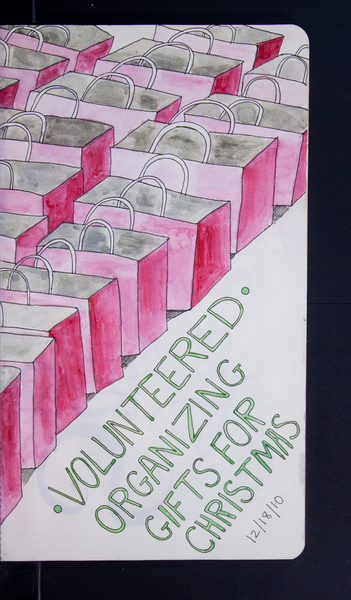 • VOLUNTEERED •
ORGANIZING
GIFTS FOR
CHRISTMAS
12/18/10